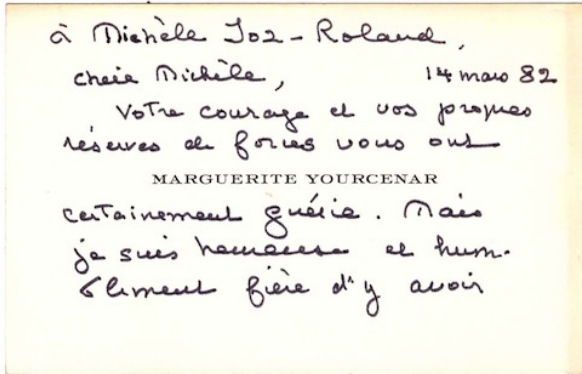 à Michèle Joz-Roland,
chère Michèle, 14 mars 82
Votre courage et vos propres
réserves de forces vous ont
MARGUERITE YOURCENAR
certainement guérie. Mais
je suis heureuse et hum-
blement fière d'y avoir